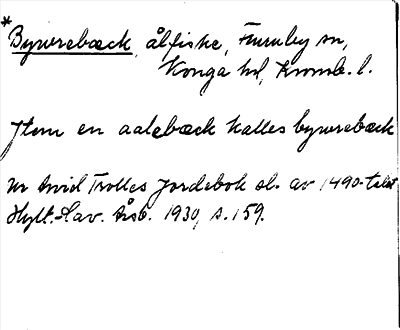 *
Bywrebæck, ålfiske, Furuby sn,
Konga hd, Kronob. l.
Jtem en aalebæck kalles bywrebæck
ur Arvid Trolles Jordebok sl. av 1490-talet
Hylt.-Cav. Årsb. 1930, s. 159.